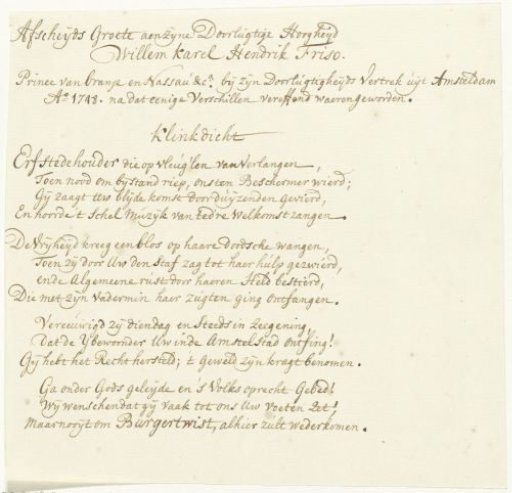 Afscheyds Groete aen zyne Doorlugtige Hoogheyd
Willem Karel Hendrik Friso.
Prince van Oranje en Nassau &c. by zyn Doorlugtigheyds Vertrek uyt Amsteldam
Ao. 1748. na dat eenige Verschillen vereffend waeren geworden.
Klinkdicht
Erfstedehouder die op vleug'len van verlangen,
Toen nood om bystand riep, ons ten Beschermer wierd;
Gy zaagt Uw blyde komst door duyzenden gevierd,
En hoorde 't schel Muzyk van tedre Welkomst zangen.
De Vryheyd kreeg een blos op haare doodsche wangen,
Toen zy door Uw den Staf zag tot haer hulp gezwierd,
ende Algemeene rust door haeren Held bestierd,
Die met zyn Vadermin haer zugten ging ontfangen.
Vereeuwigd zy die dag en Steeds in Zeegening,
Dat de Ybewoonder Uw in de Amstelstad ontfing!
Gy hebt het Recht hersteld; 't geweld zyn kragt benomen.
Ga onder Gods geleyde en 's Volks oprecht Gebed!
Wy wenschen dat gy vaak tot ons Uw voeten Zet!
Maar nooyt om Burgertwist, alhier zult wederkomen.